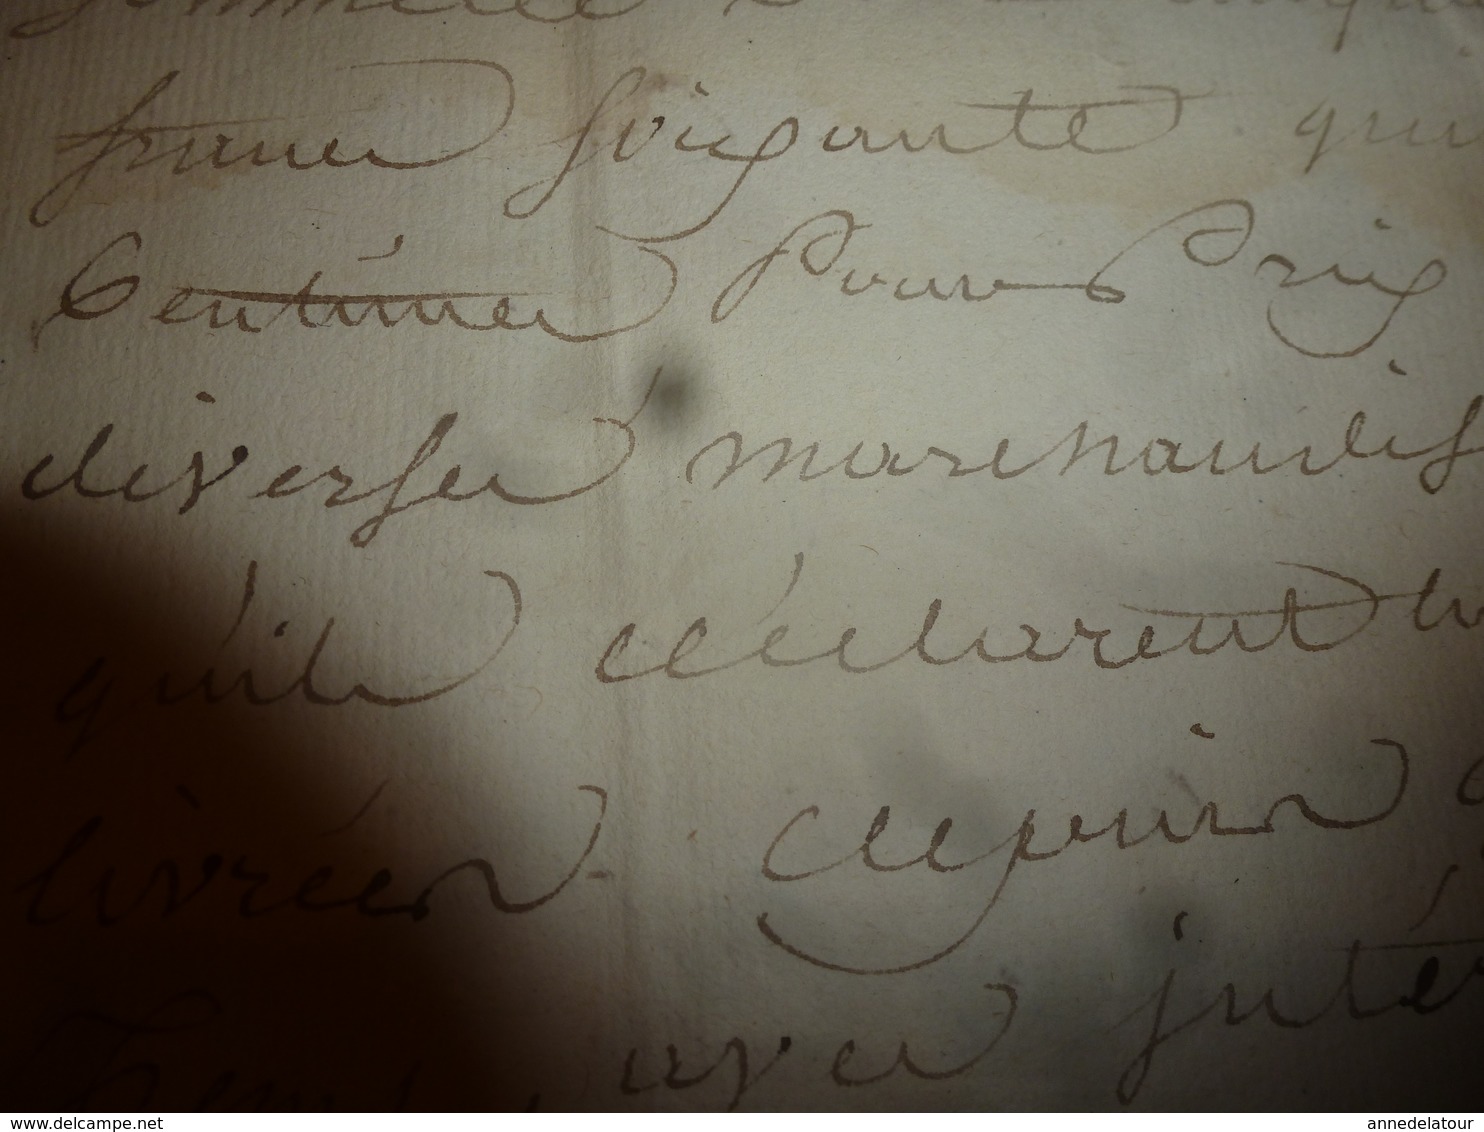 francs soixante qui
Centimes Pour Prix
diverses marchandis
qu'ils déclarent
livrées depuis
Tems, avec intér
www.delcampe.net
annedelatour